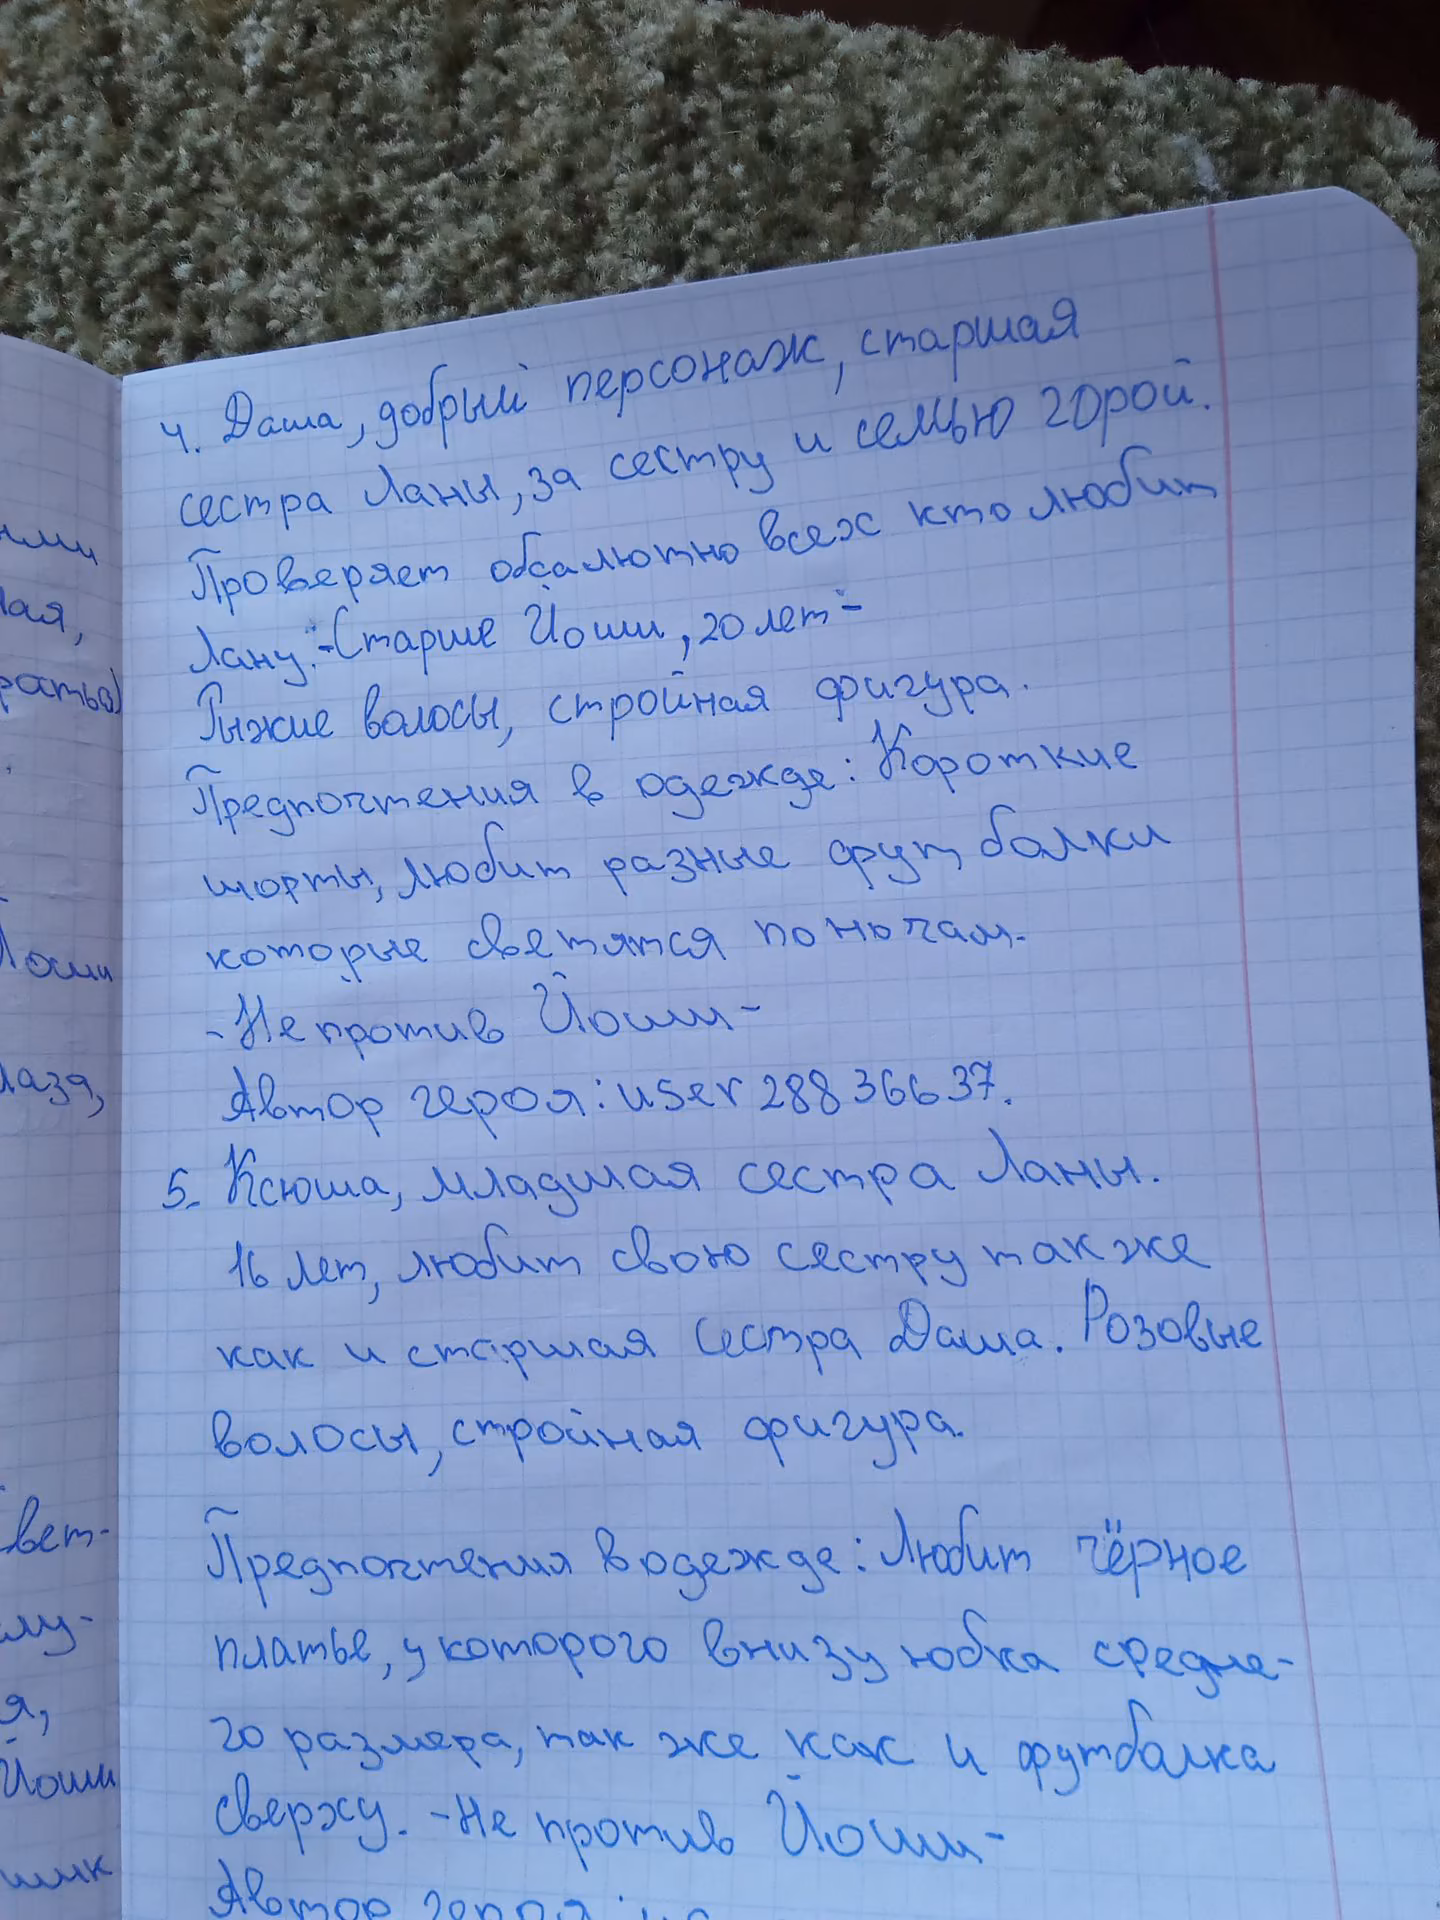 4. Даша, добрый персонаж, старшая
сестра Ланы, за сестру и семью горой.
Проверяет обсалютно всех кто любит
Лану. -Старше Йоши, 20 лет-
Рыжие волосы, стройная фигура.
Предпочтения в одежде: Короткие
шорты, любит разные футболки
которые светятся по ночам.
-Не против Йоши-
Автор героя: user28836637.
5. Ксюша, младшая сестра Ланы.
16 лет, любит свою сестру так же
как и старшая сестра Даша. Розовые
волосы, стройная фигура.
Предпочтения в одежде: Любит чёрное
платье, у которого внизу юбка средне-
го размера, так же как и футболка
сверху. -Не против Йоши-
Автор героя: